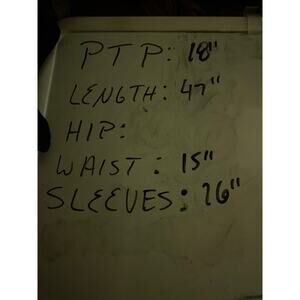 PTP: 18"
LENGTH: 47"
HIP:
WAIST: 15"
SLEEVES: 26"